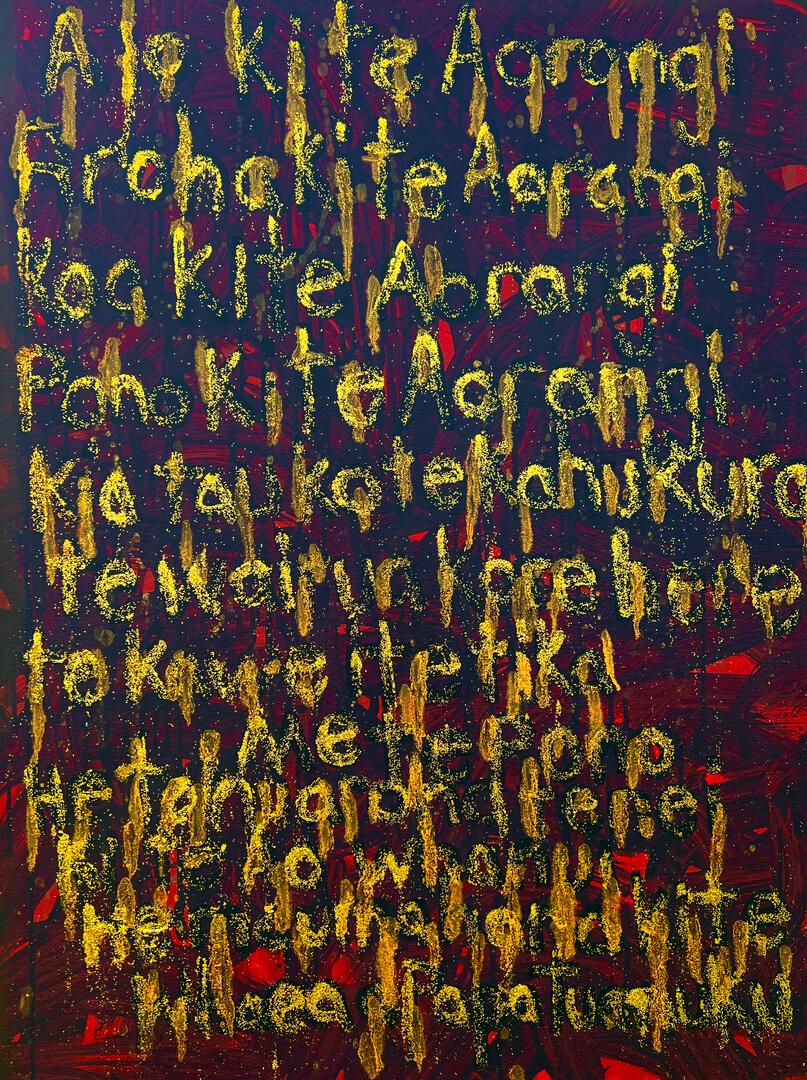 A Io Ki te Aorangi
Aroha Ki te Aorangi
Koa Ki te Aorangi
Pono Ki te Aorangi
Kia tau ka te Kahukura
te wairua kore here
te tika
Me te Pono
He tenei
Ki te ao whanui
He ki te
Papatuanuku